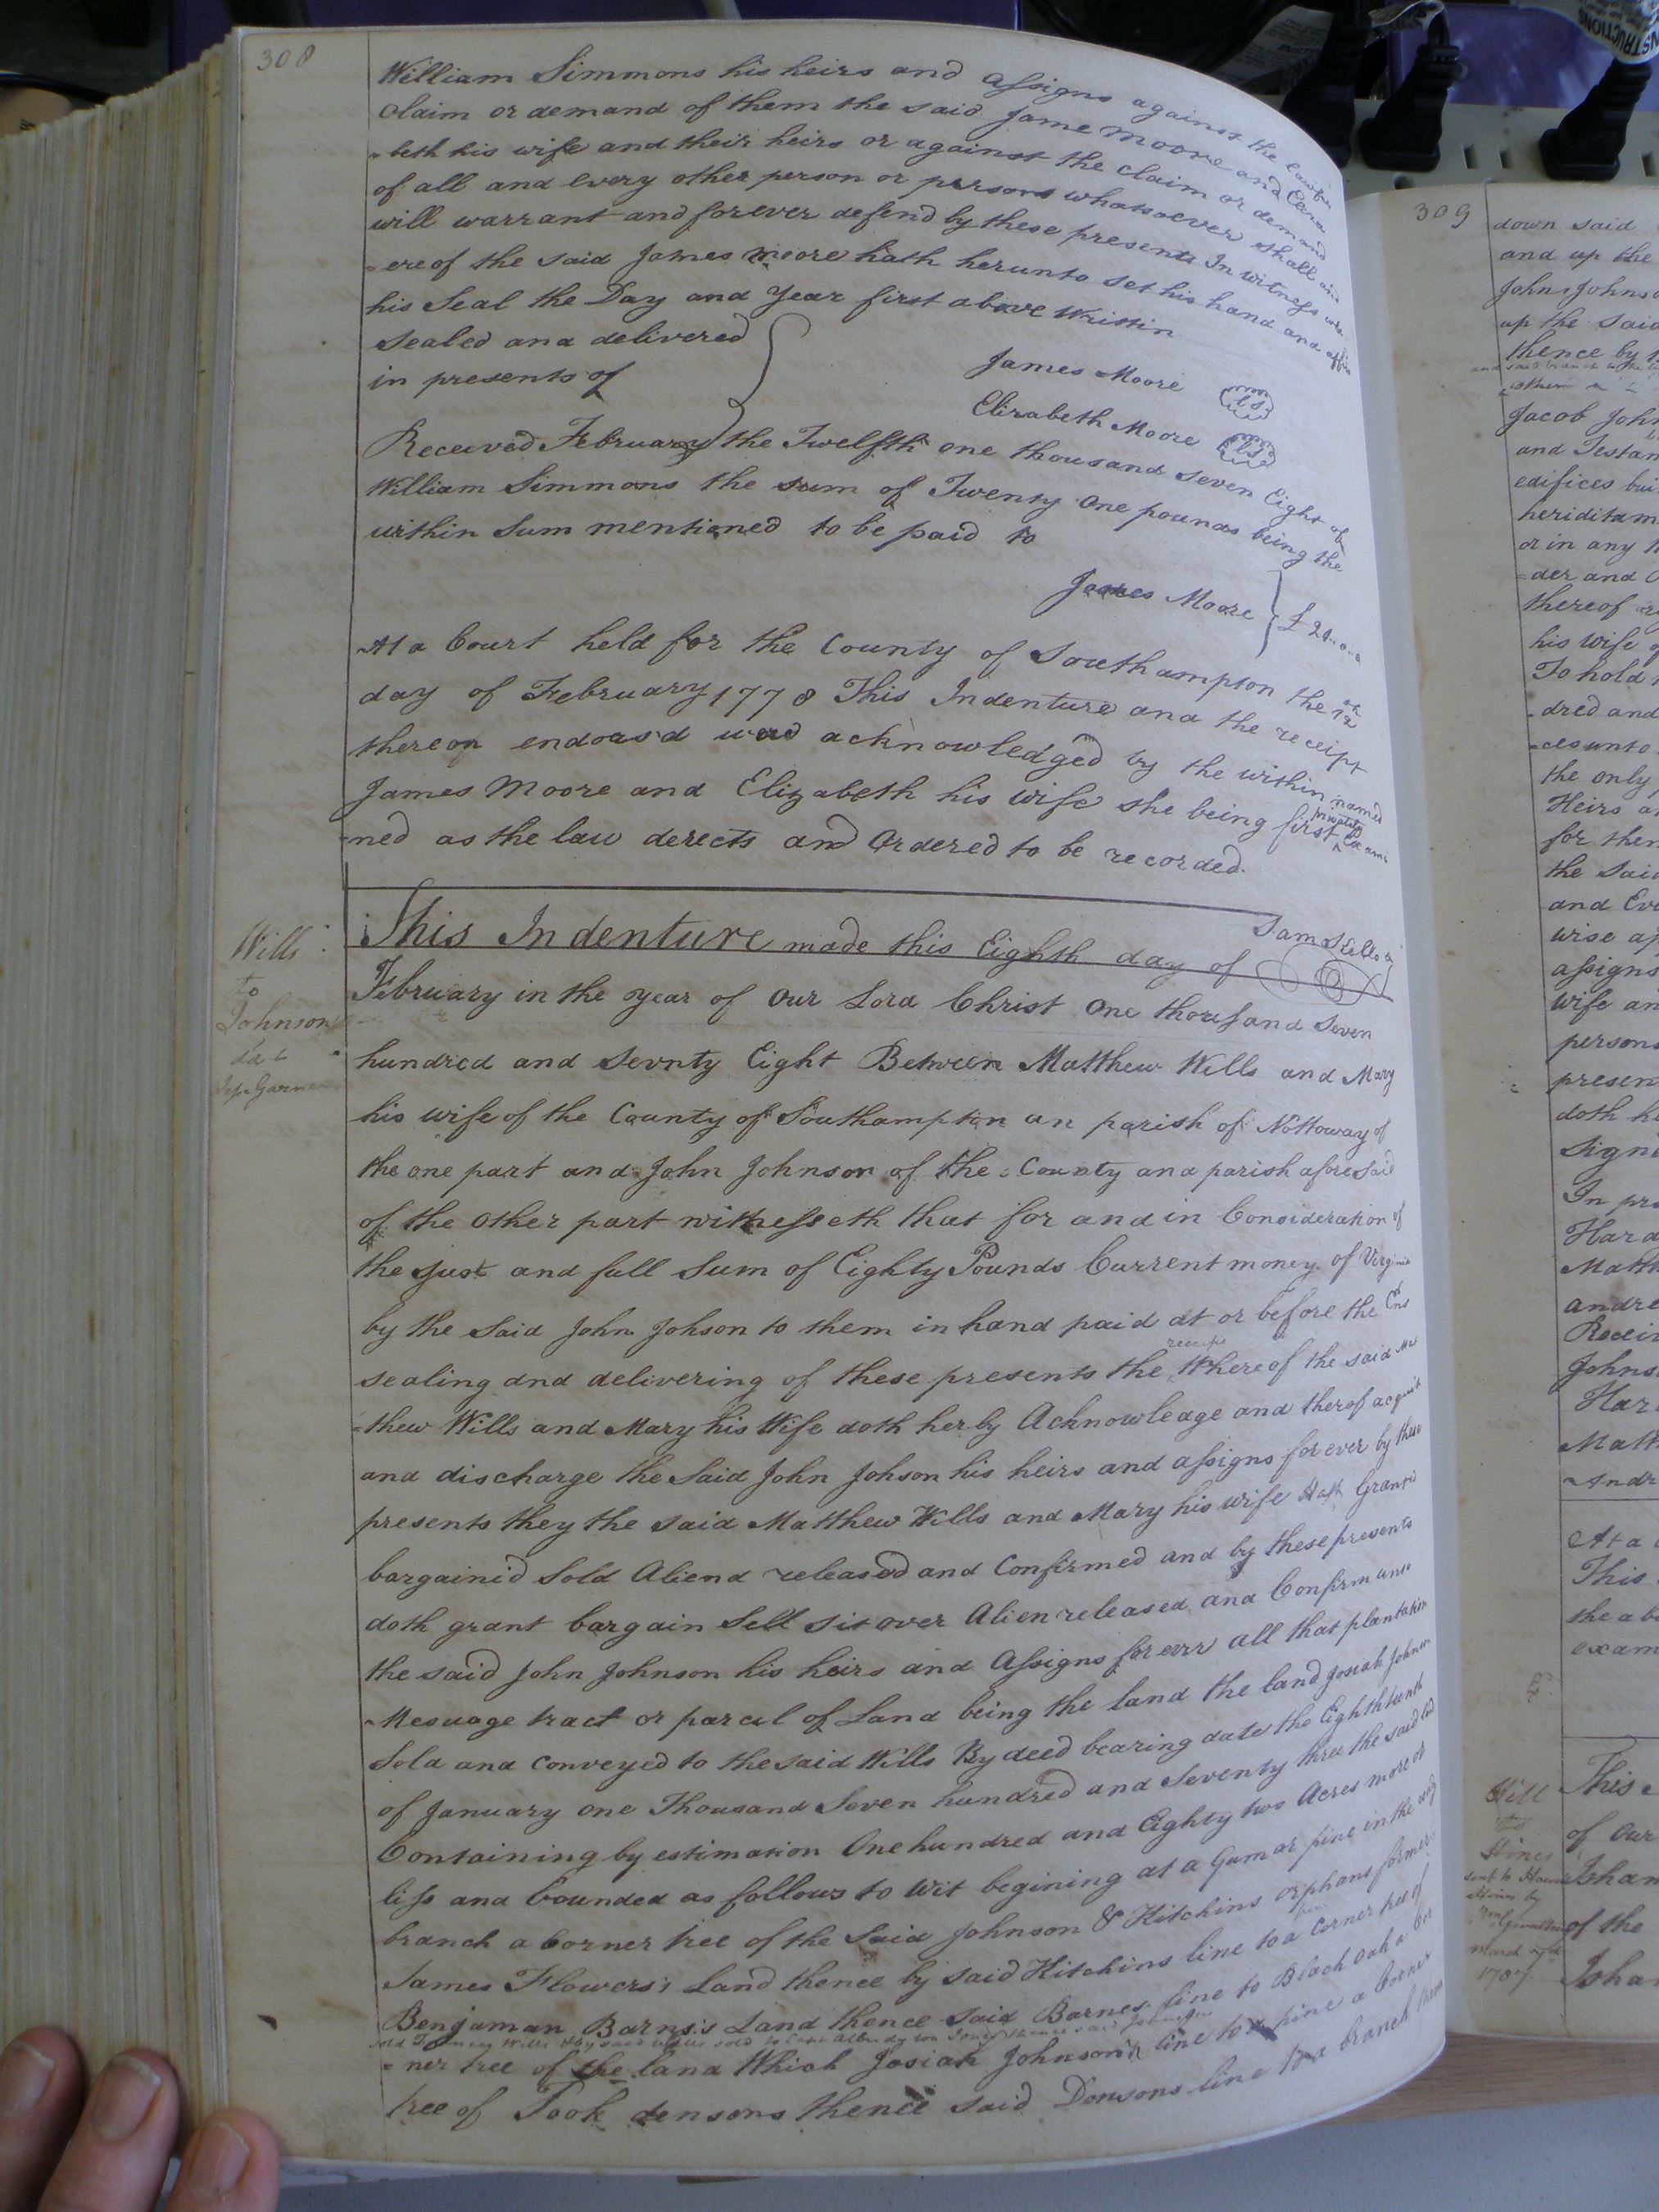 308
William Simmons his heirs and assigns against the lawful
claim or demand of them the said Jame Moore and Eliza
=beth his wife and their heirs or against the claim or demand
of all and every other person or persons whatsoever shall and
will warrant and forever defend by these presents In witness whe
=ereof the said James Moore hath herunto set his hand and affix
his Seal the Day and Year first above Writtin
Sealed and delivered
in presents of
James Moore LS
Elizabeth Moore LS
Received February the Twelfth one thousand seven Eight of
William Simmons the sum of Twenty One pounds being the
within Sum mentioned to be paid to
James Moore } £21
At a Court held for the County of Southampton the 12th
day of February 1778 This Indenture and the receipt
thereon endorsd was acknowledged by the within named
James Moore and Elizabeth his wife she being first privately Exami
=ned as the law derects and Ordered to be recorded.
Wills
to
Johnson
Sam Kello
This Indenture made this Eighth day of
February in the year of Our Lord Christ One thousand Seven
hundred and Sevnty Eight Between Matthew Wills and Mary
his wife of the County of Southampton an parish of Nottoway of
the one part and John Johnson of the County and parish aforesaid
of the Other part witnesseth that for and in Consideration of
the just and full Sum of Eighty Pounds Current money of Virginia
by the Said John Johson to them in hand paid at or before the Ens
sealing and delivering of these presents the receipt Whereof the said Mat
=thew Wills and Mary his Wife doth herby Acknowledge and therof acquit
and discharge the Said John Johson his heirs and assigns forever by these
presents they the said Matthew Wills and Mary his wife Hath Grantd
bargainid Sold Aliend released and Confirmed and by these presents
doth grant bargain Sell sit over Alien released and Confirm unto
the said John Johnson his heirs and Assigns forevrr all that plantation
Mesuage tract or parcel of Land being the land the land Josiah Johnson
Sold and Conveyed to the said Wills By deed bearing date the Eighthteenth
of January one Thousand Seven hundred and Seventy three the said land
Containing by estimation One hundred and Eighty two Acres more or
liss and bounded as follows to Wit begining at a Gum or pine in the
branch a Corner tree of the Said Johnson & Hitchins orphans former
James Flowers's Land thence by said Hitchins line to a pine Corner tree of
Benjaman Barns's Land thence said Barnes line to Black Oak a Cor
=ner tree of the land Which Josiah Johnson line to a pine a Corner
tree of Took densons thence said Donsons line to a branch thence
309
down said
and up the
John Johnso
up the said
thence by
Jacob John
and Testam
edifices bui
heriditam
or in any
=der and
thereof
his wife
To hold
=dred and
=ces unto
the only
Heirs a
for them
the Said
and Eve
wise ap
assigns
wife an
persons
presen
doth h
Signd
In pre
Hard
Matth
andre
Recei
Johns
Har
Matt
Andr
At a
This
the ab
exam
Hill
to
Hines
March
1787
This
of Our
Isham
of the
Isha